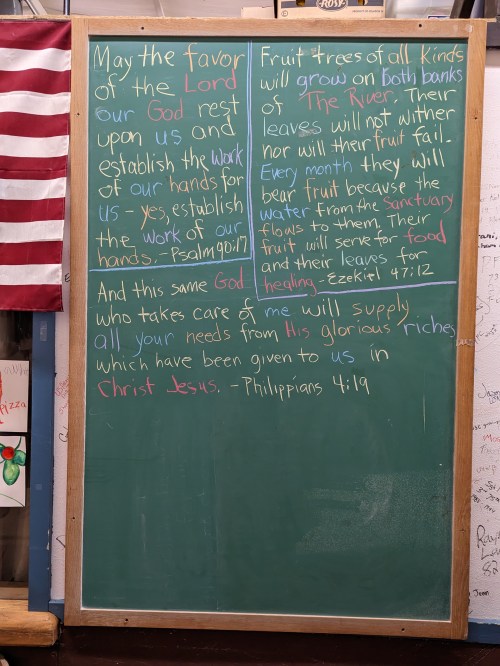 ROSY
May the favor
of the Lord
our God rest
upon us and
establish the work
of our hands for
us - yes, establish
the work of our
hands. - Psalm 90:17
Fruit trees of all kinds
will grow on both banks
of The River. Their
leaves will not wither
nor will their fruit fail.
Every month they will
bear fruit because the
water from the Sanctuary
flows to them. Their
fruit will serve for food
and their leaves for
healing - Ezekiel 47:12
And this same God
who takes care of me will supply
all your needs from His glorious riches,
which have been given to us in
Christ Jesus. - Philippians 4:19
pizza